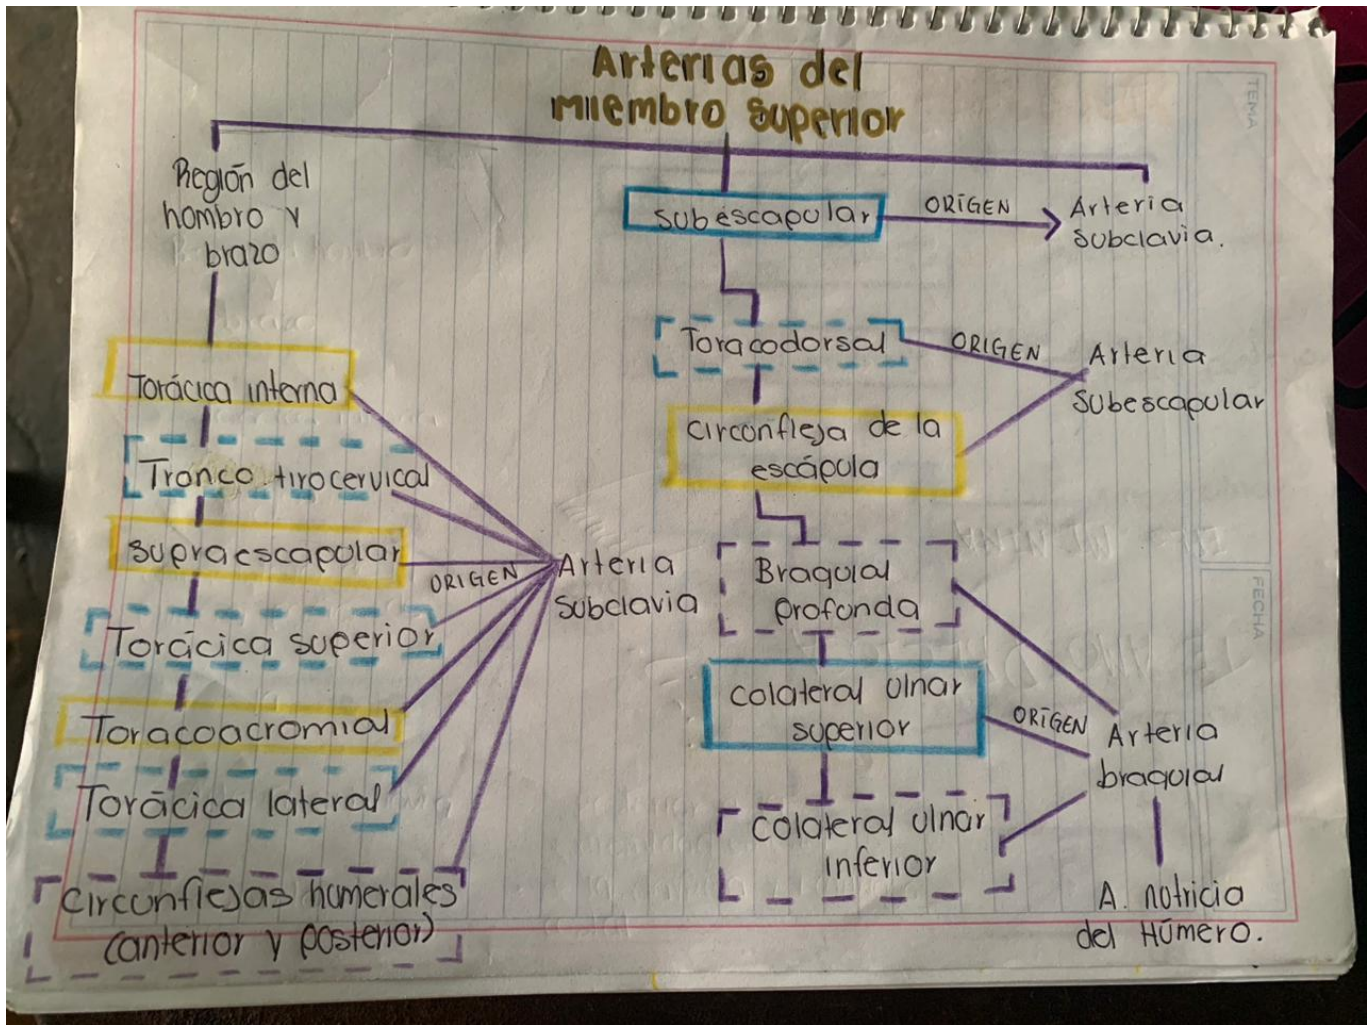 Arterias del
miembro superior
Región del
hombro y
brazo
Torácica interna
Tronco tirocervical
supraescapular
Torácica superior
Toracoacromial
Torácica lateral
Circunflejas humerales
(anterior y posterior)
ORIGEN
Arteria
subclavia
subescapular
ORIGEN
Arteria
subclavia.
Toracodorsal
ORIGEN
Arteria
subescapular
circonfleja de la
escápula
Braquial
profunda
colateral ulnar
superior
ORIGEN
Arteria
braquial
colateral ulnar
inferior
A. nutricia
del Húmero.
TEMA
FECHA